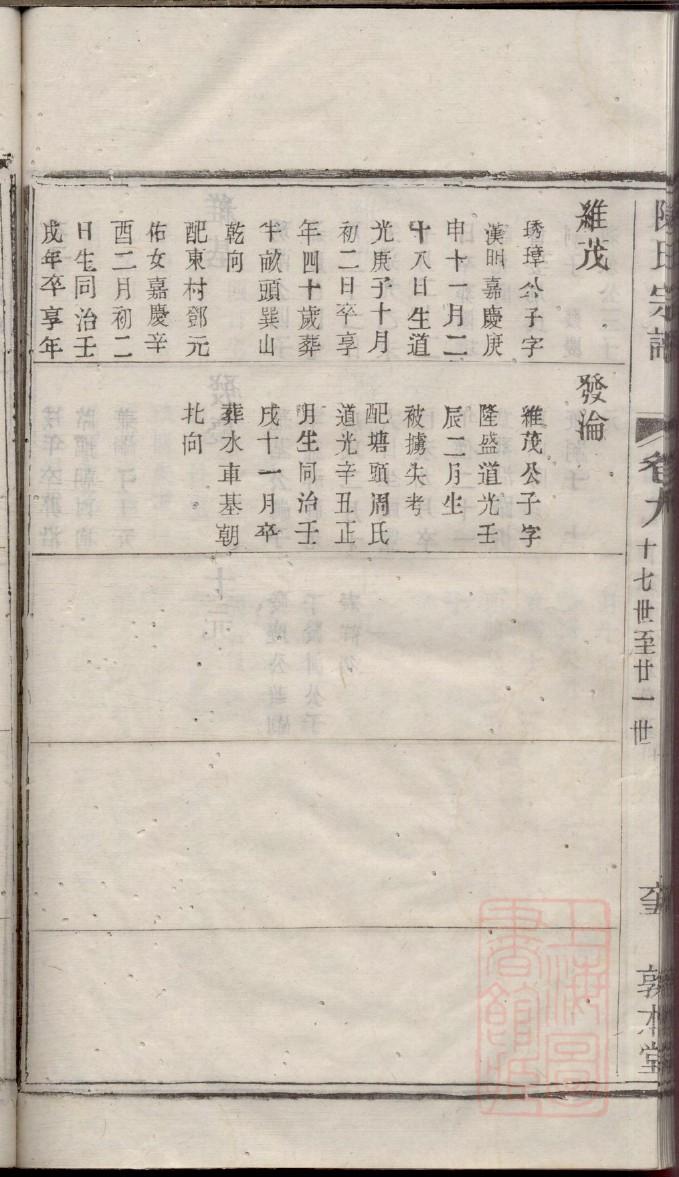 陳氏宗譜
卷九
十七世至廿一世
敦本堂
維茂
琇璋公子字
漢明嘉慶庚
申十一月二
十八日生道
光庚子十月
初二日卒享
年四十歲葬
半畝頭巽山
乾向
配東村鄧元
佑女嘉慶辛
酉二月初二
日生同治壬
戌年卒享年
發淪
維茂公子字
隆盛道光壬
辰二月生
被擄失考
配塘頭周氏
道光辛丑正
月生同治壬
戌十一月卒
葬水車基朝
北向